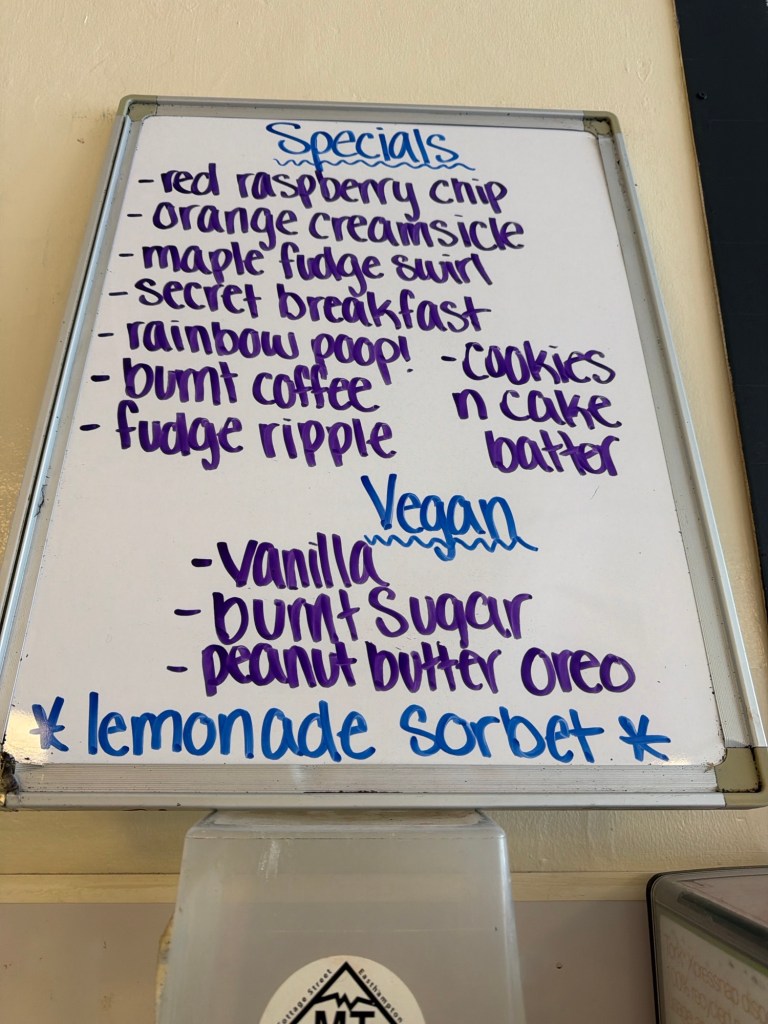 Specials
- red raspberry chip
- orange creamsicle
- maple fudge swirl
- secret breakfast
- rainbow poop!
- burnt coffee
- fudge ripple
- cookies
n cake
batter
Vegan
- vanilla
- burnt sugar
- peanut butter oreo
* lemonade sorbet *
Cottage Street Easthampton
MT